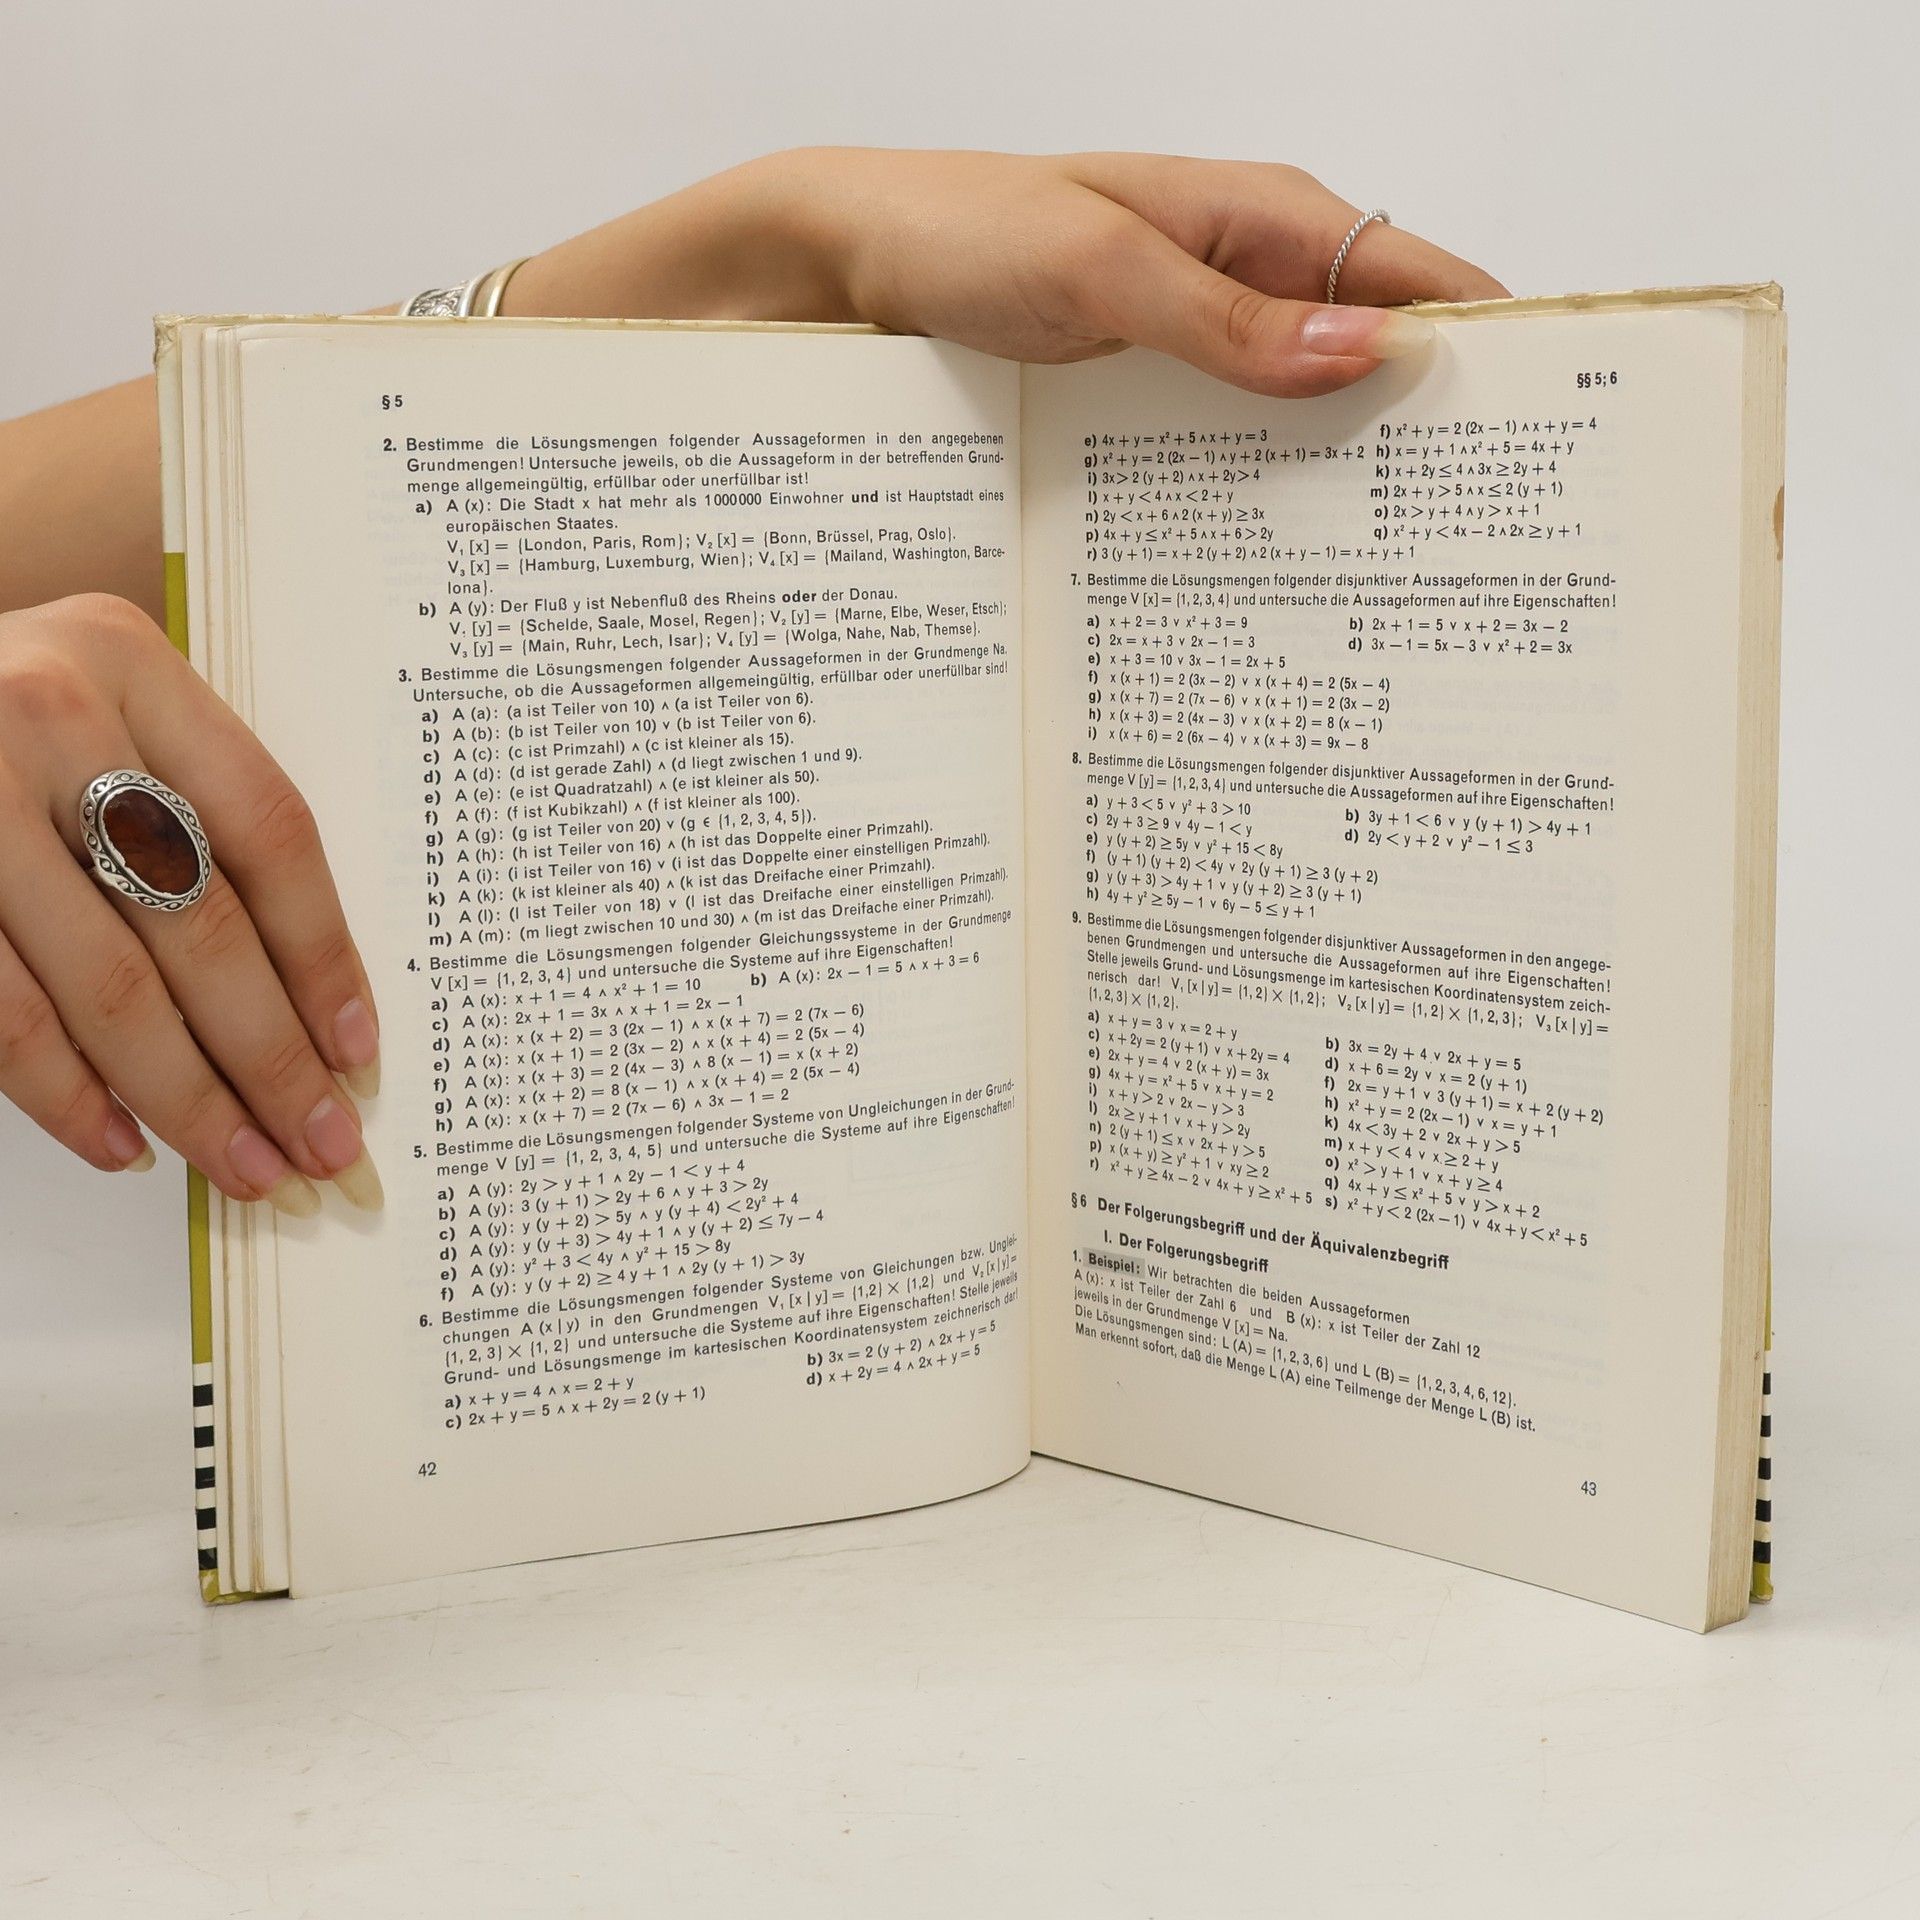 § 5
2. Bestimme die Lösungsmengen folgender Aussageformen in den angegebenen
Grundmengen! Untersuche jeweils, ob die Aussageform in der betreffenden Grund-
menge allgemeingültig, erfüllbar oder unerfüllbar ist!
a) A (x): Die Stadt x hat mehr als 1000000 Einwohner und ist Hauptstadt eines
europäischen Staates.
V₁ [x] = {London, Paris, Rom}; V₂ [x] = {Bonn, Brüssel, Prag, Oslo}.
V₃ [x] = {Hamburg, Luxemburg, Wien}; V₄ [x] = {Mailand, Washington, Barce-
lona}.
b) A (y): Der Fluß y ist Nebenfluß des Rheins oder der Donau.
V₁ [y] = {Schelde, Saale, Mosel, Regen}; V₂ [y] = {Marne, Elbe, Weser, Etsch};
V₃ [y] = {Main, Ruhr, Lech, Isar}; V₄ [y] = {Wolga, Nahe, Nab, Themse}.
3. Bestimme die Lösungsmengen folgender Aussageformen in der Grundmenge Na.
Untersuche, ob die Aussageformen allgemeingültig, erfüllbar oder unerfüllbar sind!
a) A (a): (a ist Teiler von 10) ∧ (a ist Teiler von 6).
b) A (b): (b ist Teiler von 10) ∨ (b ist Teiler von 6).
c) A (c): (c ist Primzahl) ∧ (c ist kleiner als 15).
d) A (d): (d ist gerade Zahl) ∧ (d liegt zwischen 1 und 9).
e) A (e): (e ist Quadratzahl) ∧ (e ist kleiner als 50).
f) A (f): (f ist Kubikzahl) ∧ (f ist kleiner als 100).
g) A (g): (g ist Teiler von 20) ∨ (g ∈ {1, 2, 3, 4, 5}).
h) A (h): (h ist Teiler von 16) ∧ (h ist das Doppelte einer Primzahl).
i) A (i): (i ist Teiler von 16) ∨ (i ist das Doppelte einer einstelligen Primzahl).
k) A (k): (k ist kleiner als 40) ∧ (k ist das Dreifache einer Primzahl).
l) A (l): (l ist Teiler von 18) ∨ (l ist das Dreifache einer einstelligen Primzahl).
m) A (m): (m liegt zwischen 10 und 30) ∧ (m ist das Dreifache einer Primzahl).
4. Bestimme die Lösungsmengen folgender Gleichungssysteme in der Grundmenge
V [x] = {1, 2, 3, 4} und untersuche die Systeme auf ihre Eigenschaften!
a) A (x): x + 1 = 4 ∧ x² + 1 = 10 b) A (x): 2x − 1 = 5 ∧ x + 3 = 6
c) A (x): 2x + 1 = 3x ∧ x + 1 = 2x − 1
d) A (x): x (x + 2) = 3 (2x − 1) ∧ x (x + 7) = 2 (7x − 6)
e) A (x): x (x + 1) = 2 (3x − 2) ∧ x (x + 4) = 2 (5x − 4)
f) A (x): x (x + 3) = 2 (4x − 3) ∧ 8 (x − 1) = x (x + 2)
g) A (x): x (x + 2) = 8 (x − 1) ∧ x (x + 4) = 2 (5x − 4)
h) A (x): x (x + 7) = 2 (7x − 6) ∧ 3x − 1 = 2
5. Bestimme die Lösungsmengen folgender Systeme von Ungleichungen in der Grund-
menge V [y] = {1, 2, 3, 4, 5} und untersuche die Systeme auf ihre Eigenschaften!
a) A (y): 2y > y + 1 ∧ 2y − 1 < y + 4
b) A (y): 3 (y + 1) > 2y + 6 ∧ y + 3 > 2y
c) A (y): y (y + 2) > 5y ∧ y (y + 4) < 2y² + 4
d) A (y): y (y + 3) > 4y + 1 ∧ y (y + 2) ≤ 7y − 4
e) A (y): y² + 3 < 4y ∧ y² + 15 > 8y
f) A (y): y (y + 2) ≥ 4y + 1 ∧ 2y (y + 1) > 3y
6. Bestimme die Lösungsmengen folgender Systeme von Gleichungen bzw. Unglei-
chungen A (x | y) in den Grundmengen V₁ [x | y] = {1,2} × {1,2} und V₂ [x | y] =
{1, 2, 3} × {1, 2} und untersuche die Systeme auf ihre Eigenschaften! Stelle jeweils
Grund- und Lösungsmenge im kartesischen Koordinatensystem zeichnerisch dar!
a) x + y = 4 ∧ x = 2 + y b) 3x = 2 (y + 2) ∧ 2x + y = 5
c) 2x + y = 5 ∧ x + 2y = 2 (y + 1) d) x + 2y = 4 ∧ 2x + y = 5
42
§§ 5; 6
e) 4x + y = x² + 5 ∧ x + y = 3 f) x² + y = 2 (2x − 1) ∧ x + y = 4
g) x² + y = 2 (2x − 1) ∧ y + 2 (x + 1) = 3x + 2 h) x = y + 1 ∧ x² + 5 = 4x + y
i) 3x > 2 (y + 2) ∧ x + 2y > 4 k) x + 2y ≤ 4 ∧ 3x ≥ 2y + 4
l) x + y < 4 ∧ x < 2 + y m) 2x + y > 5 ∧ x ≤ 2 (y + 1)
n) 2y < x + 6 ∧ 2 (x + y) ≥ 3x o) 2x > y + 4 ∧ y > x + 1
p) 4x + y ≤ x² + 5 ∧ x + 6 > 2y q) x² + y < 4x − 2 ∧ 2x ≥ y + 1
r) 3 (y + 1) = x + 2 (y + 2) ∧ 2 (x + y − 1) = x + y + 1
7. Bestimme die Lösungsmengen folgender disjunktiver Aussageformen in der Grund-
menge V [x] = {1, 2, 3, 4} und untersuche die Aussageformen auf ihre Eigenschaften!
a) x + 2 = 3 ∨ x² + 3 = 9 b) 2x + 1 = 5 ∨ x + 2 = 3x − 2
c) 2x = x + 3 ∨ 2x − 1 = 3 d) 3x − 1 = 5x − 3 ∨ x² + 2 = 3x
e) x + 3 = 10 ∨ 3x − 1 = 2x + 5
f) x (x + 1) = 2 (3x − 2) ∨ x (x + 4) = 2 (5x − 4)
g) x (x + 7) = 2 (7x − 6) ∨ x (x + 1) = 2 (3x − 2)
h) x (x + 3) = 2 (4x − 3) ∨ x (x + 2) = 8 (x − 1)
i) x (x + 6) = 2 (6x − 4) ∨ x (x + 3) = 9x − 8
8. Bestimme die Lösungsmengen folgender disjunktiver Aussageformen in der Grund-
menge V [y] = {1, 2, 3, 4} und untersuche die Aussageformen auf ihre Eigenschaften!
a) y + 3 < 5 ∨ y² + 3 > 10 b) 3y + 1 < 6 ∨ y (y + 1) > 4y + 1
c) 2y + 3 ≥ 9 ∨ 4y − 1 < y d) 2y < y + 2 ∨ y² − 1 ≤ 3
e) y (y + 2) ≥ 5y ∨ y² + 15 < 8y
f) (y + 1) (y + 2) < 4y ∨ 2y (y + 1) ≥ 3 (y + 2)
g) y (y + 3) > 4y + 1 ∨ y (y + 2) ≥ 3 (y + 1)
h) 4y + y² ≥ 5y − 1 ∨ 6y − 5 ≤ y + 1
9. Bestimme die Lösungsmengen folgender disjunktiver Aussageformen in den angege-
benen Grundmengen und untersuche die Aussageformen auf ihre Eigenschaften!
Stelle jeweils Grund- und Lösungsmenge im kartesischen Koordinatensystem zeich-
nerisch dar! V₁ [x | y] = {1, 2} × {1, 2}; V₂ [x | y] = {1, 2} × {1, 2, 3}; V₃ [x | y] =
{1, 2, 3} × {1, 2}.
a) x + y = 3 ∨ x = 2 + y b) 3x = 2y + 4 ∨ 2x + y = 5
c) x + 2y = 2 (y + 1) ∨ x + 2y = 4 d) x + 6 = 2y ∨ x = 2 (y + 1)
e) 2x + y = 4 ∨ 2 (x + y) = 3x f) 2x = y + 1 ∨ 3 (y + 1) = x + 2 (y + 2)
g) 4x + y = x² + 5 ∨ x + y = 2 h) x² + y = 2 (2x − 1) ∨ x = y + 1
i) x + y > 2 ∨ 2x − y > 3 k) 4x < 3y + 2 ∨ 2x + y > 5
l) 2x ≥ y + 1 ∨ x + y > 2y m) x + y < 4 ∨ x ≥ 2 + y
n) 2 (y + 1) ≤ x ∨ 2x + y > 5 o) x² > y + 1 ∨ x + y ≥ 4
p) x (x + y) ≥ y² + 1 ∨ xy ≥ 2 q) 4x + y ≤ x² + 5 ∨ y > x + 2
r) x² + y ≥ 4x − 2 ∨ 4x + y ≥ x² + 5 s) x² + y < 2 (2x − 1) ∨ 4x + y < x² + 5
§ 6 Der Folgerungsbegriff und der Äquivalenzbegriff
I. Der Folgerungsbegriff
1. Beispiel: Wir betrachten die beiden Aussageformen
A (x): x ist Teiler der Zahl 6 und B (x): x ist Teiler der Zahl 12
jeweils in der Grundmenge V [x] = Na.
Die Lösungsmengen sind: L (A) = {1, 2, 3, 6} und L (B) = {1, 2, 3, 4, 6, 12}.
Man erkennt sofort, daß die Menge L (A) eine Teilmenge der Menge L (B) ist.
43